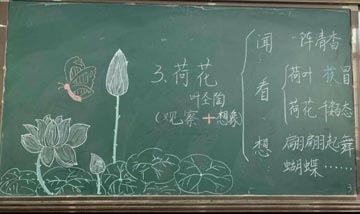 3、荷花
叶圣陶
(观察+想象)
闻 一阵清香
看 荷叶 挨 冒
荷花 千姿态
想 翩翩起舞
蝴蝶……